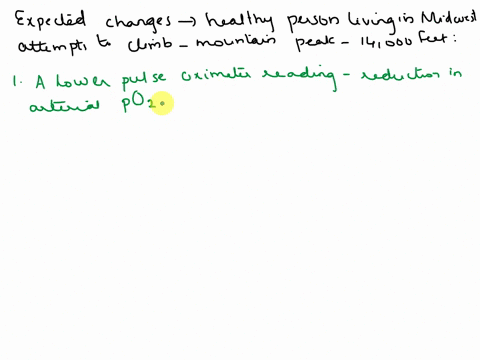 Expected changes → healthy person living in Midwest
attempts to climb - mountain peak - 14,000 feet:
1. A lower pulse oximeter reading - reduction in
arterial pO2.